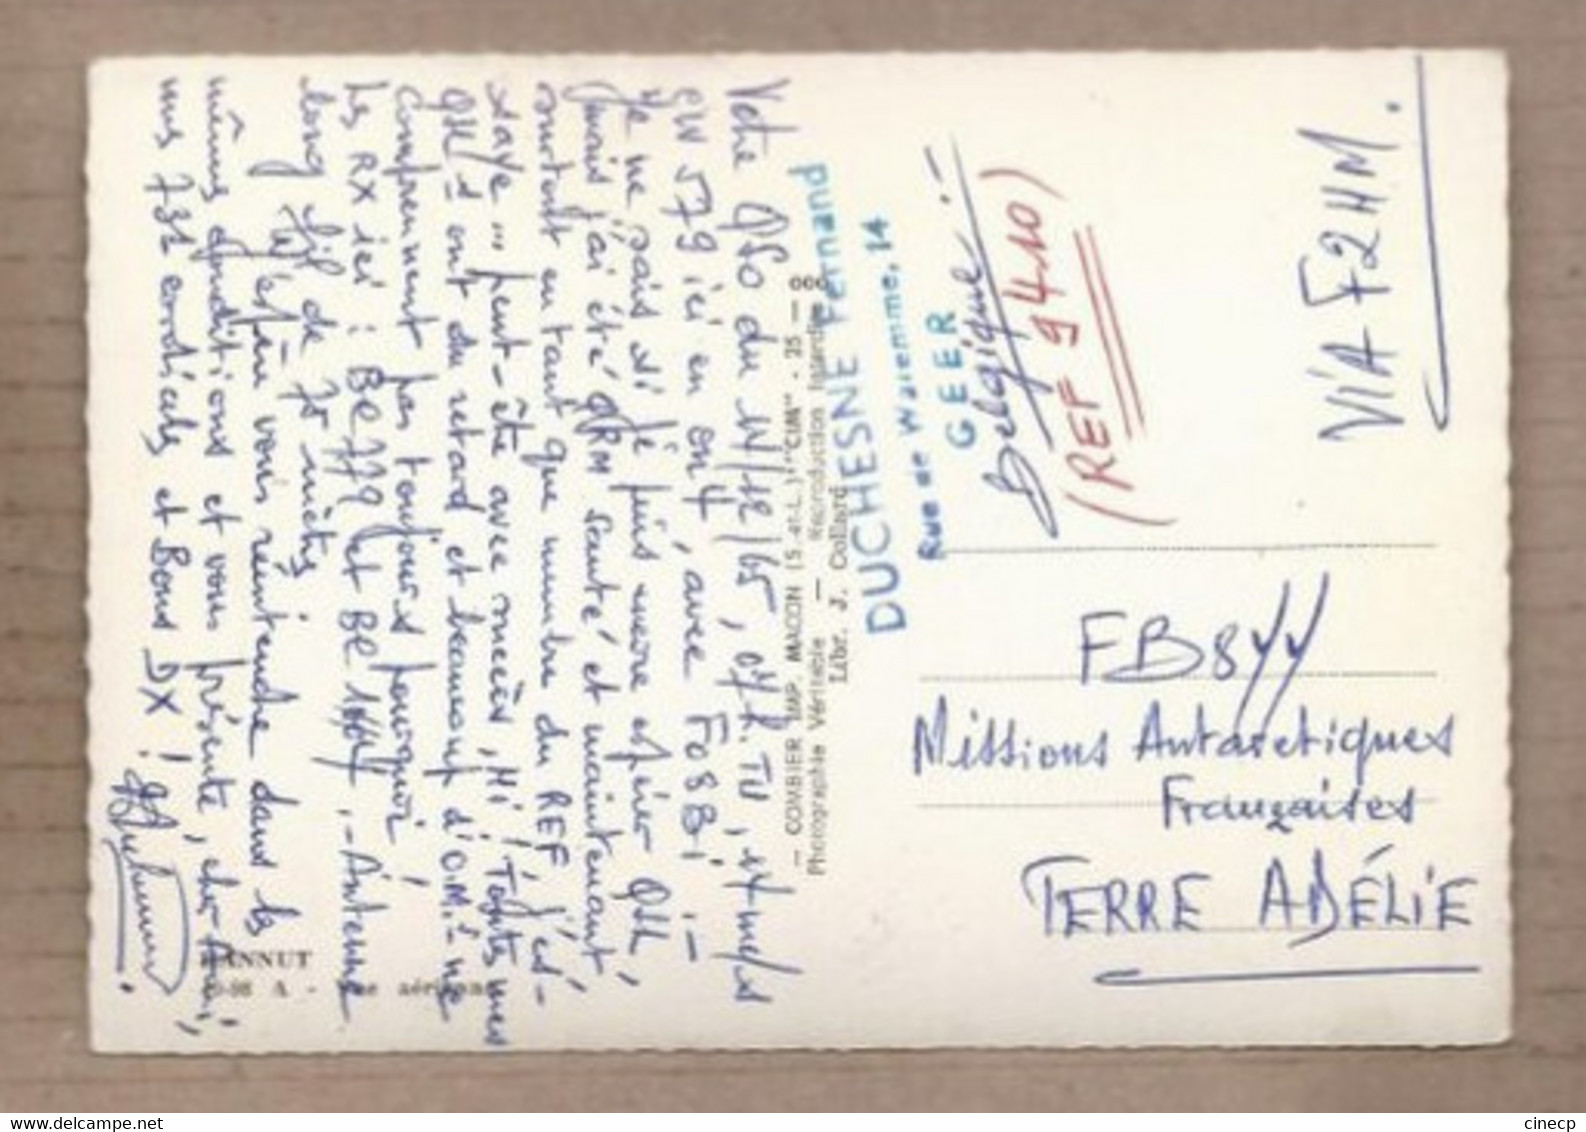 Votre QSO du 14/12/65, 07h. TU, 14 mc/s
CW 579 ici en on4, avec FO8BI :-
Je ne sais si je puis encore espérer QSL,
mais j'ai été QRM santé et maintenant,
surtout en tant que membre du REF, j'es-
saye ... peut-être avec succès, HI! Toutes mes
QSLs ont du retard et beaucoup d'O.M.s ne
comprennent pas toujours pourquoi!
Les RX ici : BC 779 et BC .- Antenne
long fil de 75 mètres
J'espère vous réentendre dans les
mêmes conditions et vous présente, cher Ami,
mes 73s cordiales et Bons DX!
HANNUT
A - Vue aérienne
— COMBIER IMP. MACON (S.-et-L.) "CIM" - 35 —
Photographie Véritable — Reproduction Interdite
Libr. J. Collard
DUCHESNE Fernand
Rue de Waremme, 14
GEER
Belgique.-
(REF 9410)
VIA F2HM.
FB8YY
Missions Antarctiques
Françaises
TERRE ADÉLIE
cinecp
www.delcampe.net